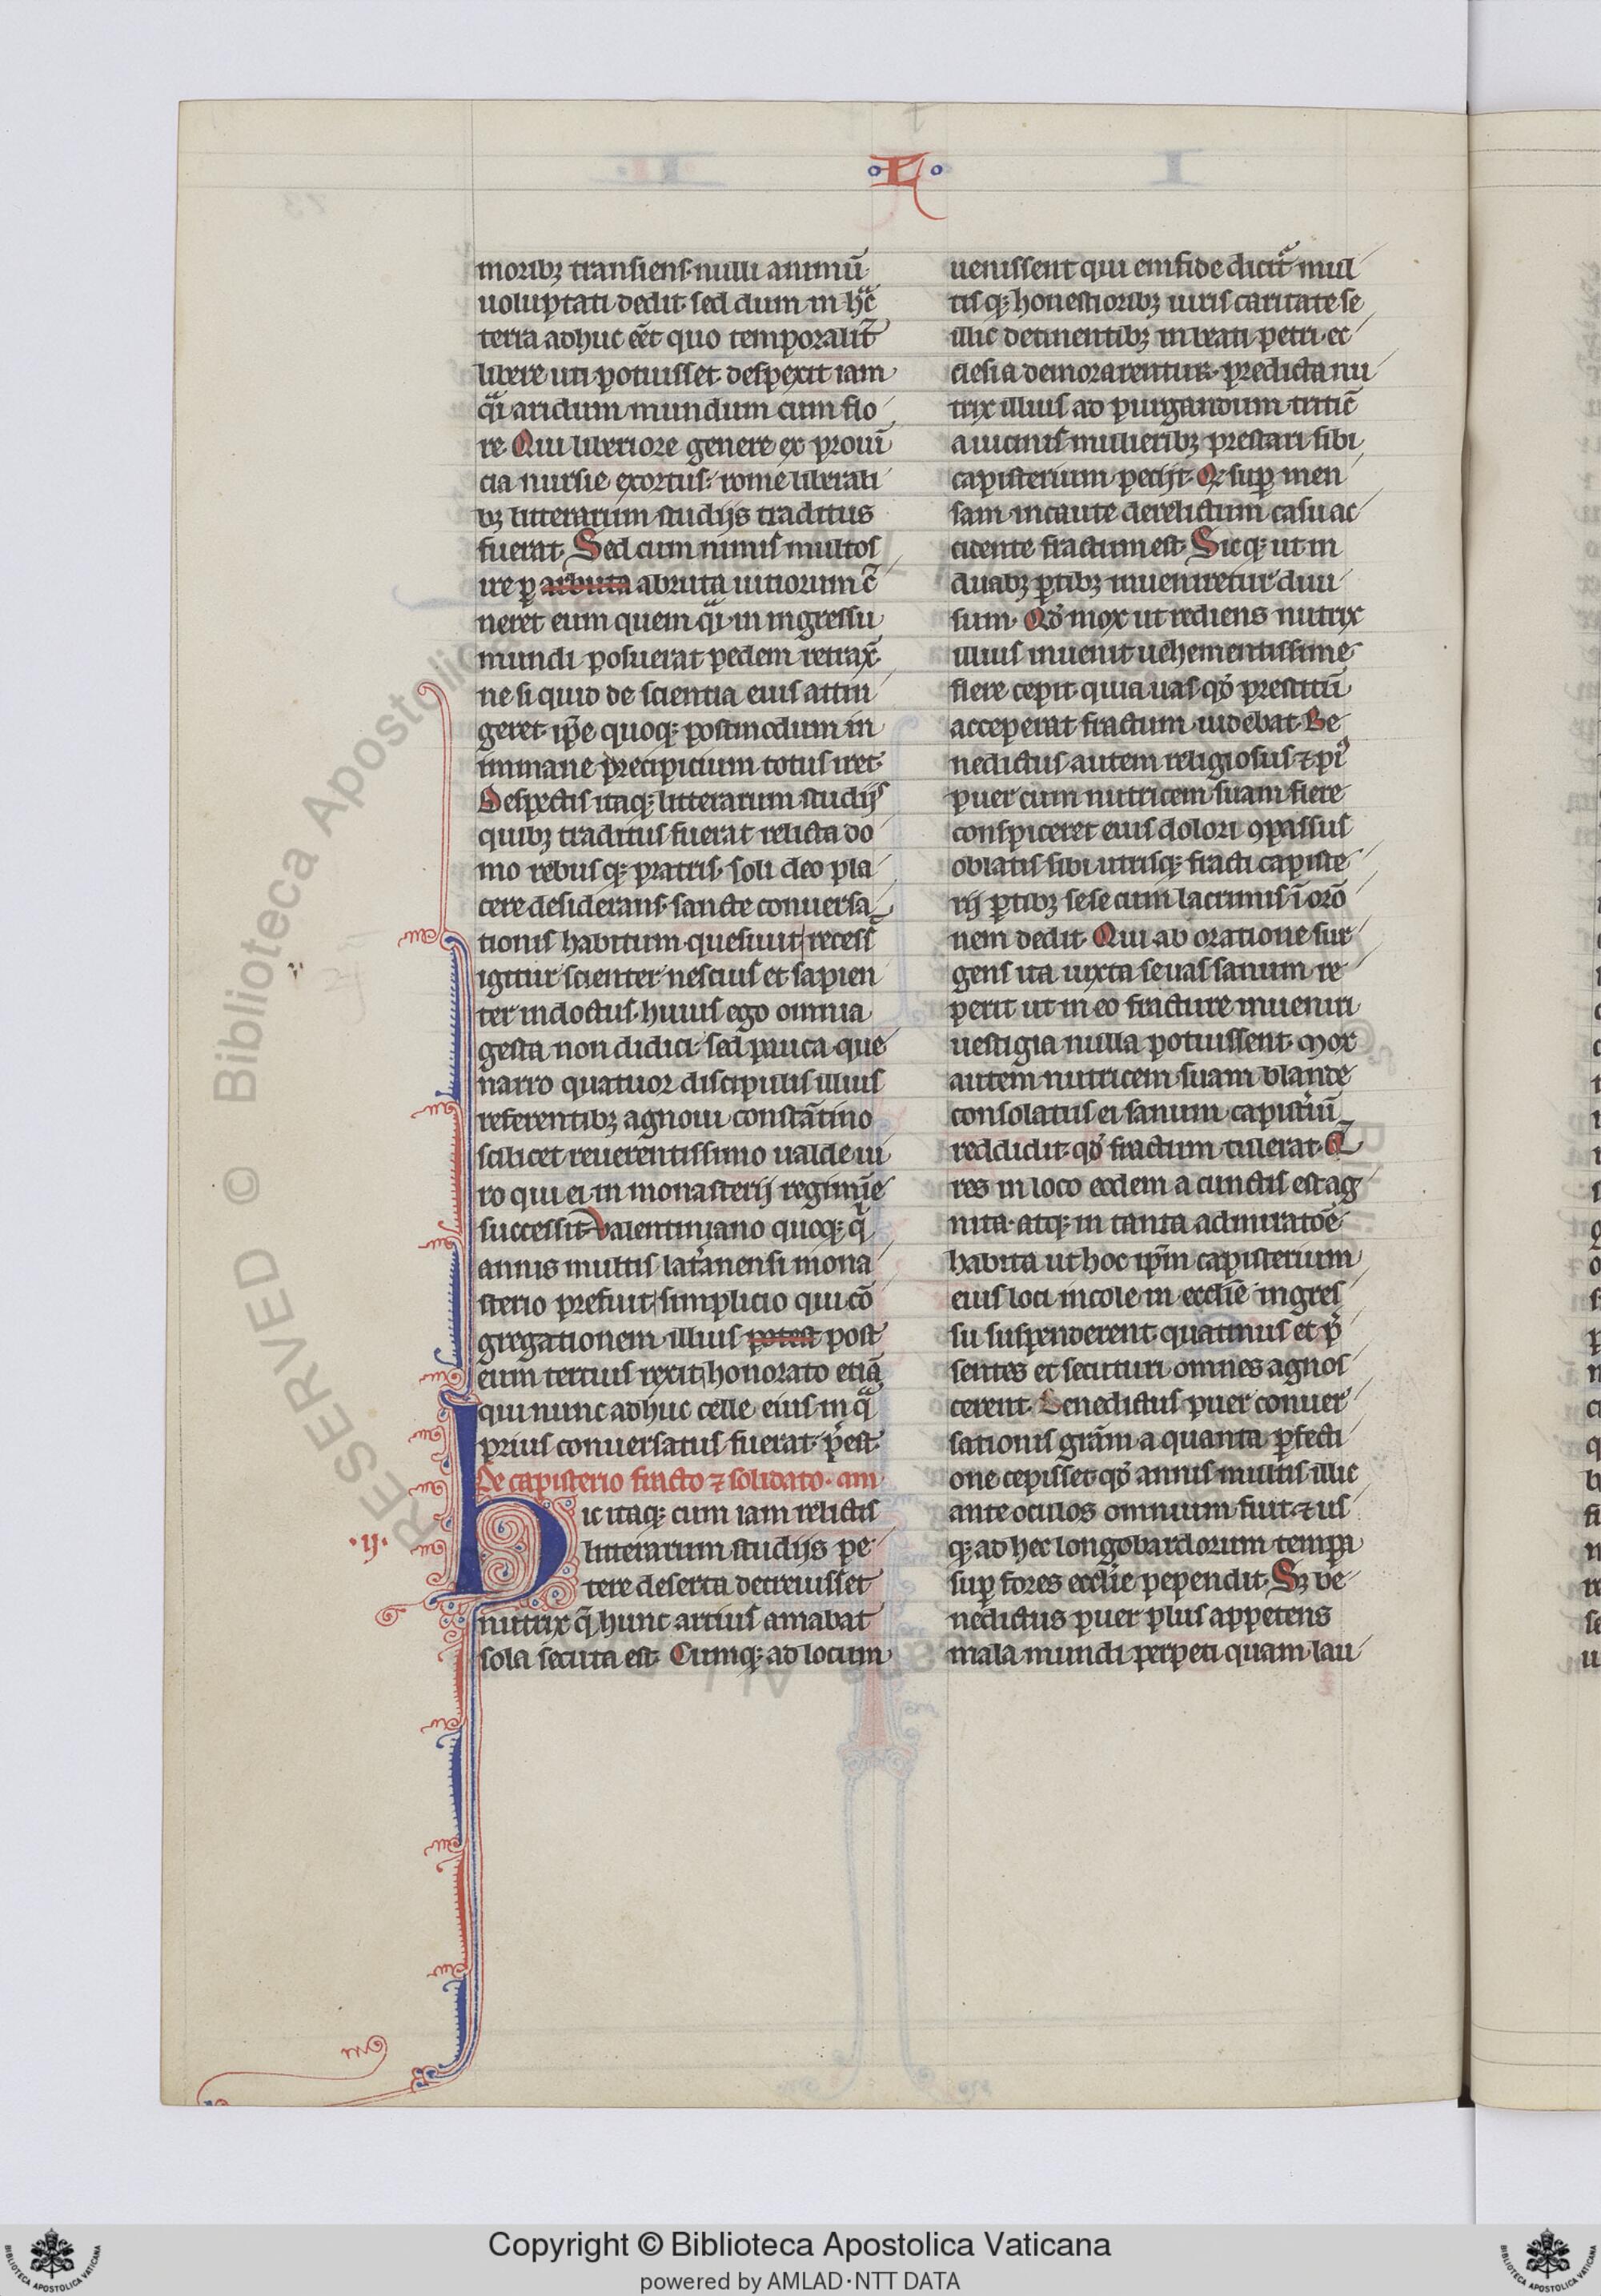 L
moribꝫ transiens nulli animū
uoluptati dedit sed dum in hͣc
terra adhuc eēt quo temporalit̾
libere uti potuisset despexit iam
qͣi aridum mundum cum flo
re Qui liberiore genere ex prouī
cia nursie exortus rome liberali
bꝫ litterarum studijs traditus
fuerat Sed cum nimis multos
ire ꝑ arbuta abruta uitiorum c̾
neret eum quem qͣi in ingressu
mundi posuerat pedem retrax̄
ne si quid de scientia eius attin
geret ip̄e quoqꝫ postmodum in
immane precipicium totus iret
Despectis itaqꝫ litterarum studijs
quibꝫ traditus fuerat relicta do
mo rebusqꝫ pratris soli deo pla
cere desiderans sancte conuersa
tionis habitum quesiuit recess̄
igitur scienter nescius et sapien
ter indoctus huius ego omnia
gesta non didici sed pauca que
narro quatuor discipulis illius
referentibꝫ agnoui constātino
scilicet reuerentissimo ualde ui
ro qui ei in monasterij regimīe
successit Valentiniano quoqꝫ q̄
annis multis lat̾anensi mona
sterio prefuit simplicio qui cō
gregationem illius potest post
eum tertius rexit honorato etiā
qui nunc adhuc celle eius in qͣ
prius conuersatus fuerat p̄est
De capisterio fracto ⁊ solidato. am
.ij.
Hic itaqꝫ cum iam relictis
litterarum studijs pe
tere deserta decreuisset
nutrix q̄ hunc artius amabat
sola secuta est Cumqꝫ ad locum
uenissent qui emfide dicit̾ mul
tisqꝫ honestioribꝫ uiris caritate se
illic detinentibꝫ in beati petri ec
clesia demorarentur predicta nu
trix illius ad purgandum triticū
a uicinis mulieribꝫ prestari sibi
capisterium pecijt Qͩ suꝑ men
sam incaute derelictum casu ac
cidente fractum est Sicqꝫ ut in
duabꝫ ꝑtibꝫ inueniretur diui
sum Qͩ mox ut rediens nutrix
illius inuenit uehementissime
flere cepit quia uas qͩ prestitū
acceperat fractum uidebat Be
nedictus autem religiosus ⁊ piꝰ
puer cum nutricem suam flere
conspiceret eius dolori ꝯpassus
oblatis sibi utrisqꝫ fracti capiste
rij ꝑtibꝫ sese cum lacrimis ī orō
nem dedit Qui ab oratione sur
gens ita iuxta se uas sanum re
perit ut in eo fracture inueniri
uestigia nulla potuissent Mox
autem nutricem suam blande
consolatus ei sanum capist̾iū
reddidit qͩ fractum tulerat Q̄
res in loco eodem a cunctis est ag
nita atqꝫ in tanta admiratōe
habita ut hoc ip̄m capisterium
eius loci incole in eccl̄ie ingres
su suspenderent quatinus et p̄
sentes et secuturi omnes agnos
cerent Benedictus puer conuer
sationis grām a quanta ꝑfecti
one cepisset qͩ annis multis illic
ante oculos omnium fuit ⁊ us
qꝫ ad hec longobardorum tempa
suꝑ fores eccl̄ie pependit Sꝫ be
nedictus puer plus appetens
mala mundi perpeti quam lau
RESERVED © Biblioteca Apostolica Vaticana
Copyright © Biblioteca Apostolica Vaticana
powered by AMLAD·NTT DATA